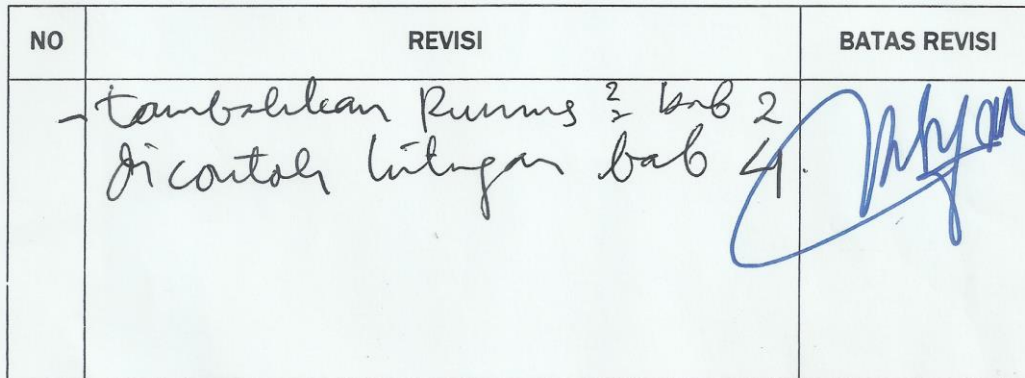 NO REVISI BATAS REVISI
- tambahkan Rumus 2 bab 2
dicontoh hitungan bab 4.